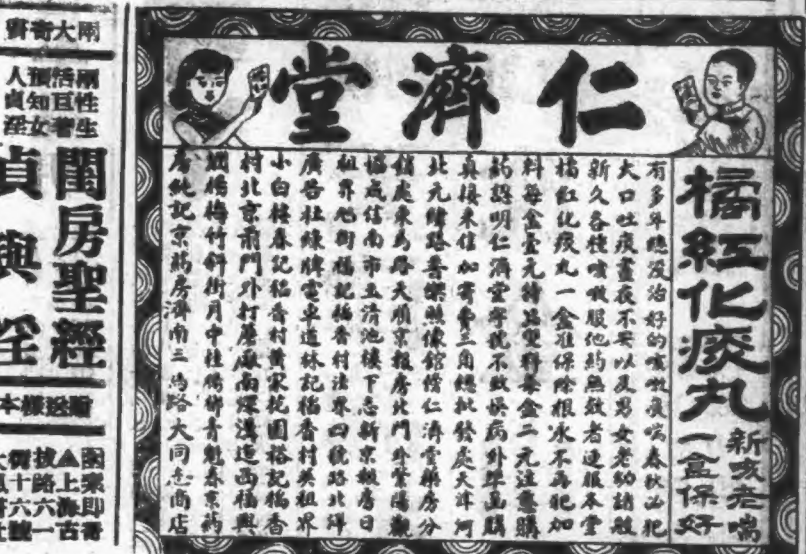 仁濟堂
橘紅化痰丸
新咳老喘
一盒保好
有多年總沒治好的咳嗽痰喘春秋必犯
大口吐痰晝夜不安以及男女老幼諸般
新久各種咳嗽服他藥無效者速服本堂
橘紅化痰丸一盒准保除根永不再犯加
料每盒壹元特品雙料每盒二元注意購
藥認明仁濟堂字號不致悞病外埠函購
真接来信加寄費三角總批發處天津河
北元緯路喜樂照像館傍仁濟堂藥房分
銷處東馬路天順京報房北門外紫陽觀
協成信南市玉清池樓下志新京報房日
租界旭街福記稻香村法界四號路北洋
廣告社綠牌電車道林記稻香村英租界
小白樓春記稻香村黃家花園裕記稻香
村北京前門外打磨廠南深溝道西福興
楊梅竹斜街月中桂楊柳青魁春京药
房純記京藥房濟南三馬路大同志商店
兩大奇書
兩性生
活宜者
預知女
人貞淫
閨房聖經
貞與淫
贈送樣本
函索即寄
▲上海古
拔路六一
十六號